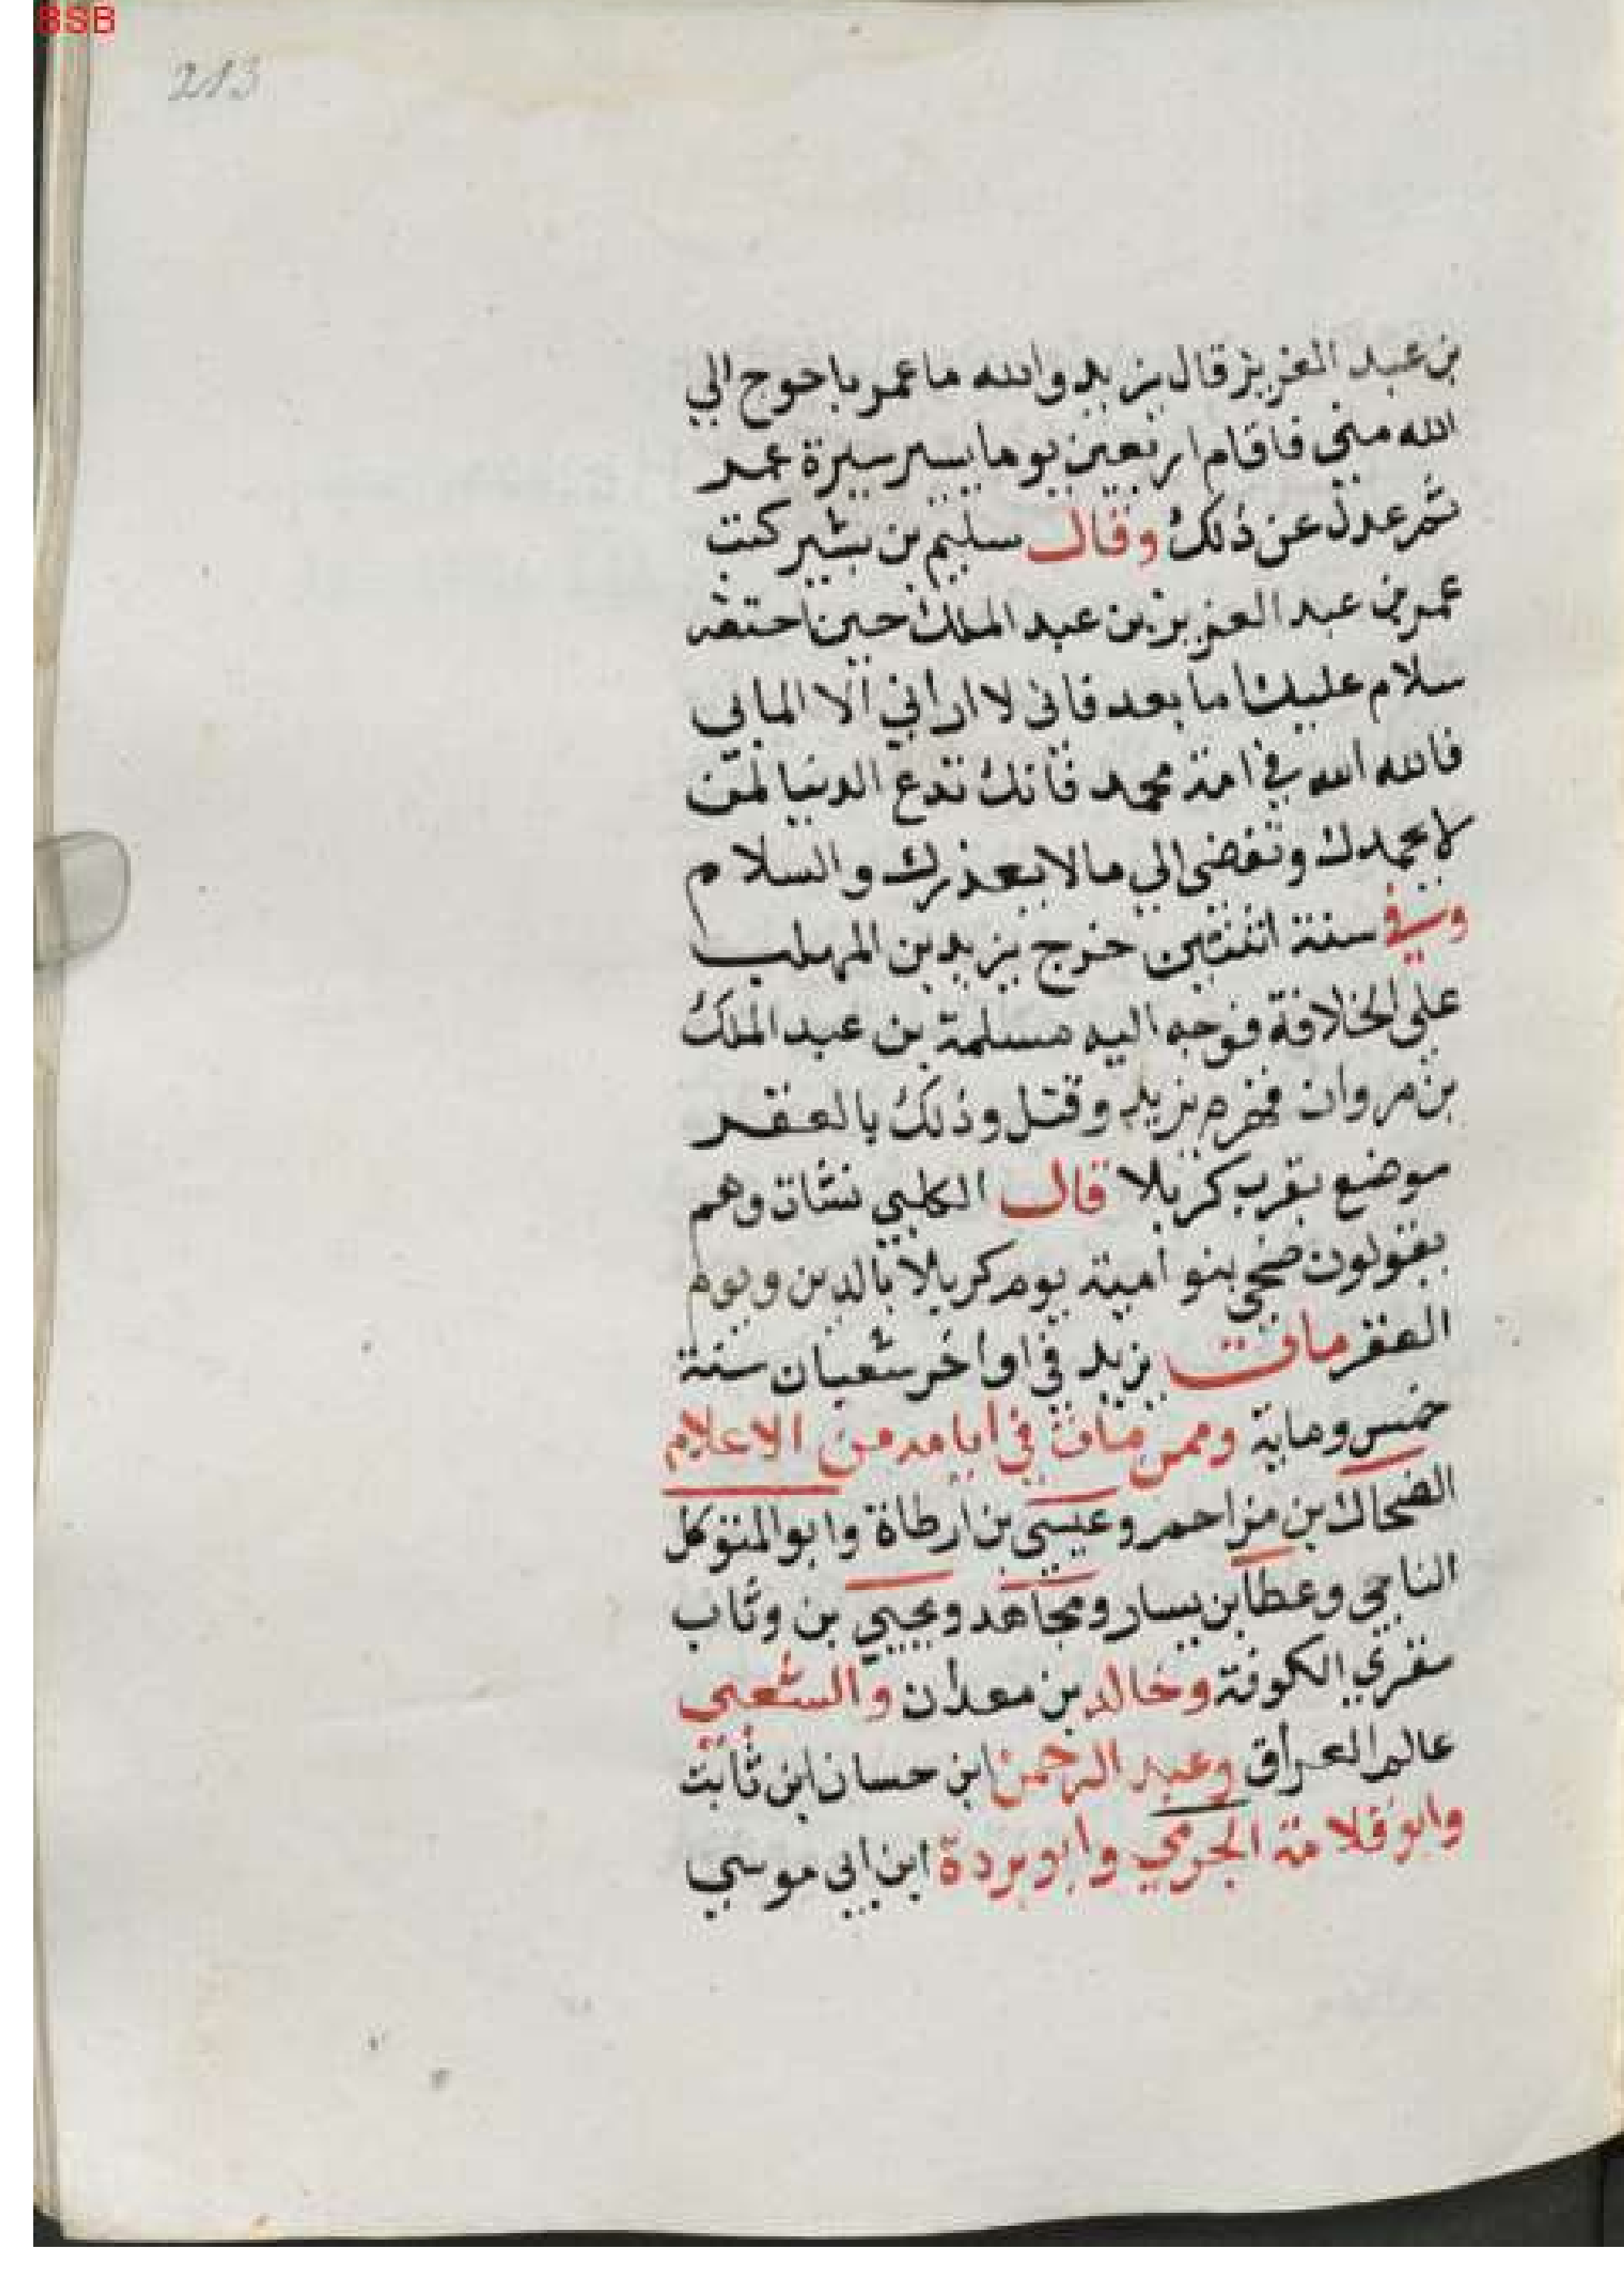 BSB
213
بن عبد العزيز قال يزيد والله ما عمر باحوج الي
الله مني فاقام اربعين يوما يسير سيرة عمر
ثم عدل عن ذلك وقال سليم بن بشير كتب
عمر بن عبد العزيز بن عبد الملك حين احتضر
سلام عليك اما بعد فاني لا اراني الا الما بي
فالله الله في امة محمد فانك تدع الدنيا لمن
لا يحمدك وتفضى الي مالا يعذرك والسلام
وفي سنة اثنتين خرج يزيد بن المهلب
على الخلافة فوجه اليه مسلمة بن عبد الملك
بن مروان فهزم يزيد وقتل وذلك بالعقر
موضع بقرب كربلا قال الكلبي نشات وهم
يقولون ضحى بنو امية يوم كربلا بالدين ويوم
العقر مات يزيد في اواخر شعبان سنة
خمس وماية وممن مات في ايامه من الاعلام
الضحاك بن مزاحم وعيسي بن ارطاة وابو المتوكل
الناجي وعطا بن يسار ومجاهد ويحيي بن وثاب
مقري الكوفة وخالد بن معدان والشعبي
عالم العراق وعبد الرحمن ابن حسان ابن ثابت
وابو قلامة الجرمي وابو بردة ابن ابي موسي